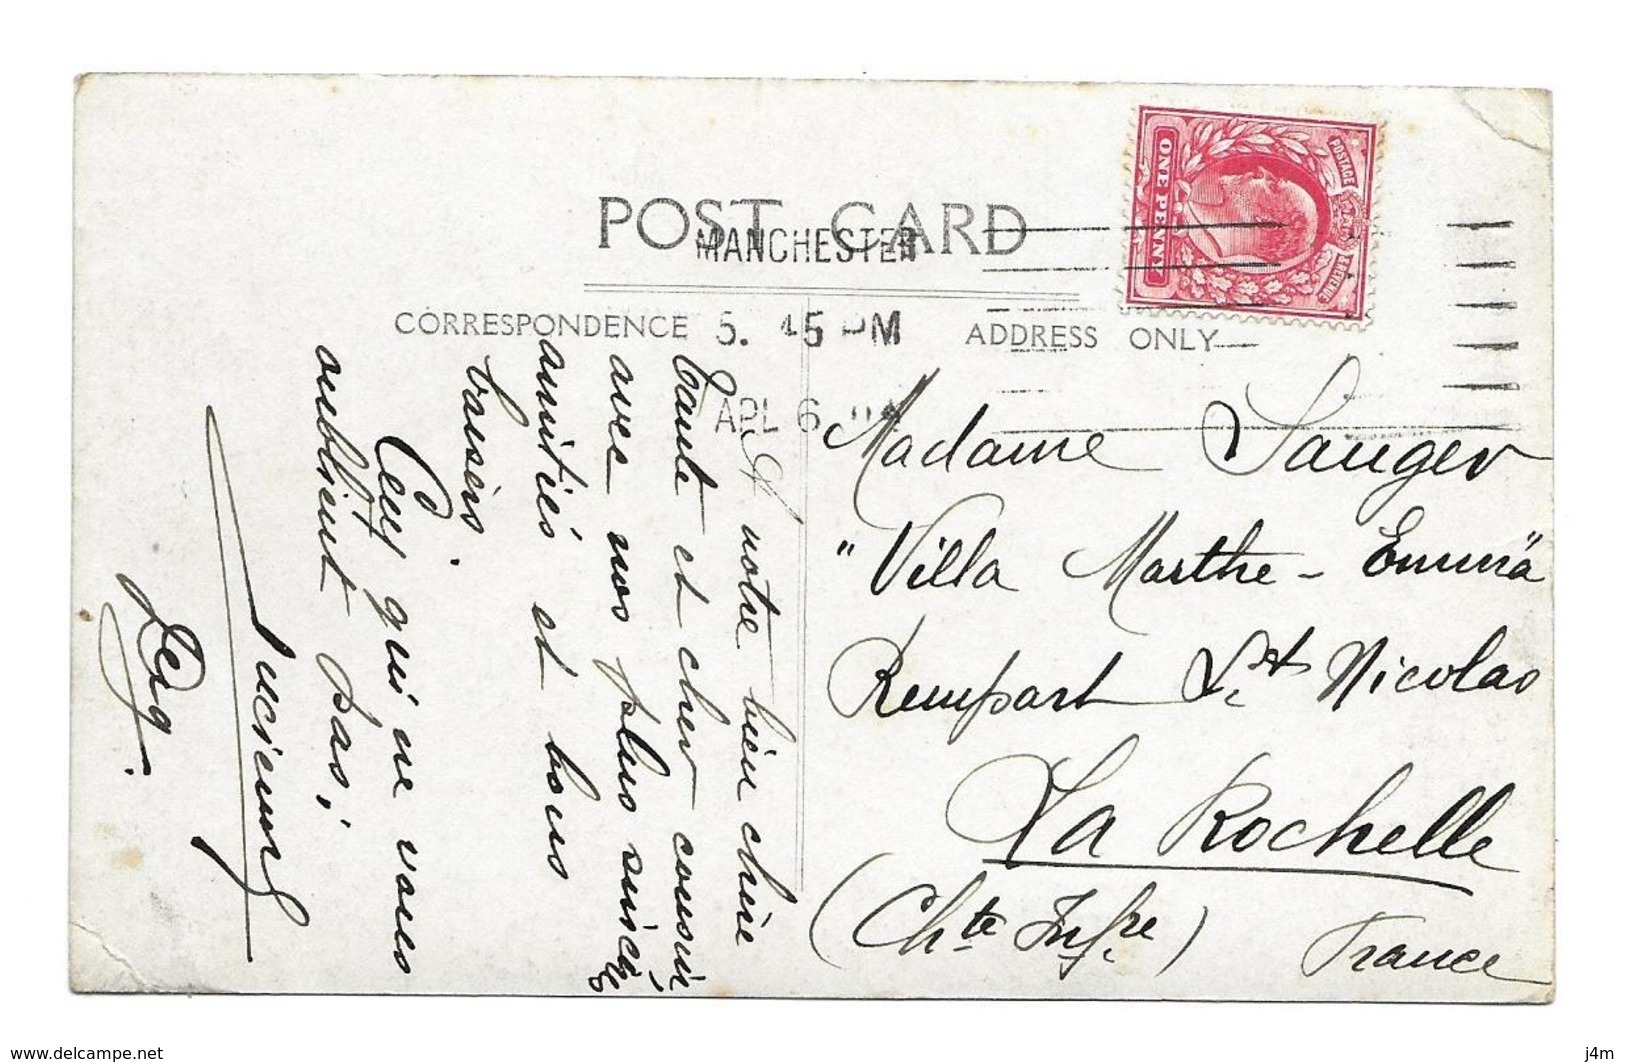 POST CARD
MANCHESTER
5. 45 PM
APL 6
CORRESPONDENCE
ADDRESS ONLY
POSTAGE
REVENUE
ONE PENNY
A notre bien chère
tante et cher cousin
avec nos plus sincères
amitiés et bons
baisers.
Ceux qui ne vous
oublient pas;
Lucienne
Madame Sauger
"Villa Marthe - Emma"
Rempart St. Nicolas
La Rochelle
(Chte Infre)
France
www.delcampe.net
j4m